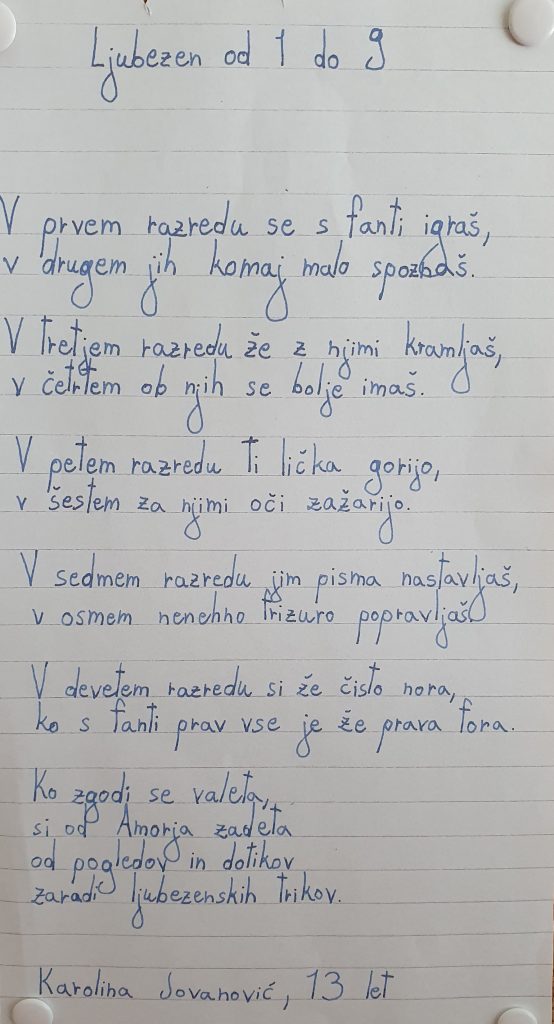 Ljubezen od 1 do 9
V prvem razredu se s fanti igraš,
v drugem jih komaj malo spoznaš.
V tretjem razredu že z njimi kramljaš,
v četrtem ob njih se bolje imaš.
V petem razredu ti lička gorijo,
v šestem za njimi oči zažarijo.
V sedmem razredu jim pisma nastavljaš,
v osmem nenehno frizuro popravljaš
V devetem razredu si že čisto nora,
ko s fanti prav vse je že prava fora.
Ko zgodi se valeta,
si od Amorja zadeta
od pogledov in dotikov
zaradi ljubezenskih trikov.
Karolina Jovanović, 13 let